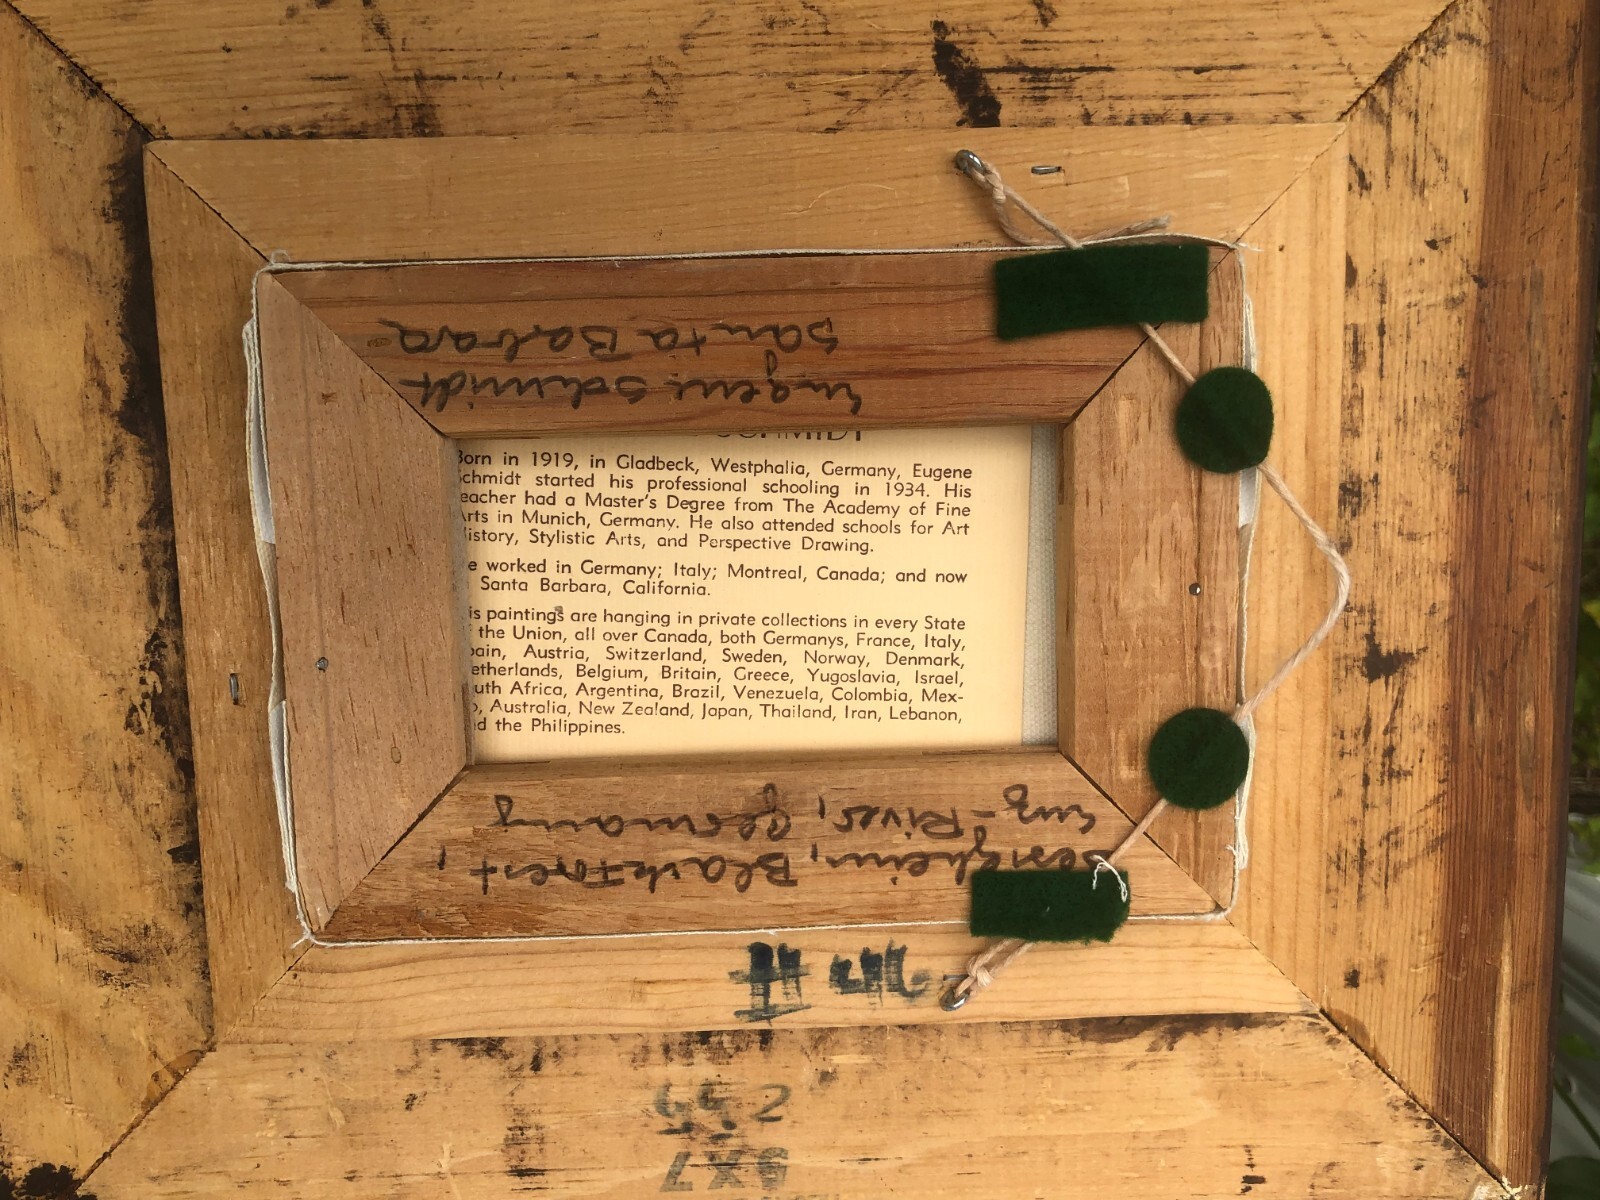 SCHMIDT
Born in 1919, in Gladbeck, Westphalia, Germany, Eugene
Schmidt started his professional schooling in 1934. His
eacher had a Master's Degree from The Academy of Fine
Arts in Munich, Germany. He also attended schools for Art
History, Stylistic Arts, and Perspective Drawing.
e worked in Germany; Italy; Montreal, Canada; and now
Santa Barbara, California.
is paintings are hanging in private collections in every State
f the Union, all over Canada, both Germanys, France, Italy,
pain, Austria, Switzerland, Sweden, Norway, Denmark,
etherlands, Belgium, Britain, Greece, Yugoslavia, Israel,
uth Africa, Argentina, Brazil, Venezuela, Colombia, Mex-
o, Australia, New Zealand, Japan, Thailand, Iran, Lebanon,
nd the Philippines.
Eugene Schmidt
Santa Barbara
Besigheim, Black Forest,
Enz-River, Germany
5x7